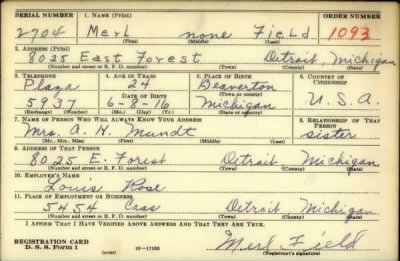 SERIAL NUMBER 1. NAME (Print) ORDER NUMBER
2704 Merl none Field 1093
(First) (Middle) (Last)
2. ADDRESS (Print)
8025 East Forest Detroit, Michigan
(Number and street or R. F. D. number) (Town) (County) (State)
3. TELEPHONE 4. AGE IN YEARS 5. PLACE OF BIRTH 6. COUNTRY OF CITIZENSHIP
Plaza 24 Beaverton
DATE OF BIRTH (Town or county)
5937 6-8-16 Michigan U.S.A.
(Exchange) (Number) (Mo.) (Day) (Yr.) (State or country)
7. NAME OF PERSON WHO WILL ALWAYS KNOW YOUR ADDRESS 8. RELATIONSHIP OF THAT PERSON
Mrs. A. H. Mundt sister
(Mr., Mrs., Miss) (First) (Middle) (Last)
9. ADDRESS OF THAT PERSON
8025 E. Forest Detroit, Michigan
(Number and street or R. F. D. number) (Town) (County) (State)
10. EMPLOYER'S NAME
Louis Rose
11. PLACE OF EMPLOYMENT OR BUSINESS
5454 Cass Detroit Michigan
(Number and street or R. F. D. number) (Town) (County) (State)
I AFFIRM THAT I HAVE VERIFIED ABOVE ANSWERS AND THAT THEY ARE TRUE.
REGISTRATION CARD
D. S. S. Form 1 (over) Merl Field
(Registrant's signature)